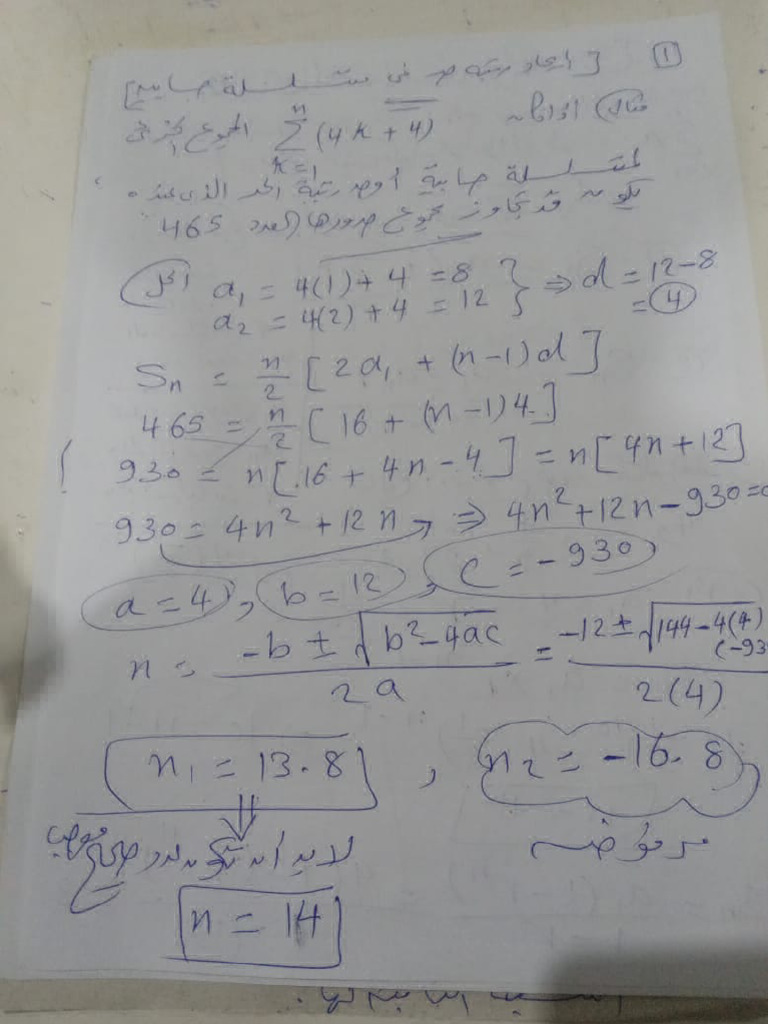 [ ايجاد رتبة حد في متسلسلة حسابية ] 1
مثال) اذا كان \sum_{k=1}^{n} (4k + 4) المجموع الجزئي
لمتسلسلة حسابية أوجد رتبة الحد الذي عنده
يكون قد تجاوز مجموع حدودها العدد 465
الحل a₁ = 4(1) + 4 = 8 } ⇒ d = 12 - 8
a₂ = 4(2) + 4 = 12 } = 4
Sn = n/2 [ 2a₁ + (n-1)d ]
465 = n/2 [ 16 + (n-1)4 ]
930 = n[ 16 + 4n - 4 ] = n[ 4n + 12 ]
930 = 4n² + 12n ⇒ 4n² + 12n - 930 = 0
a = 4 , b = 12 , c = -930
n = (-b ± √(b² - 4ac)) / 2a = (-12 ± √(144 - 4(4)(-93 / 2(4)
n₁ = 13.8 , n₂ = -16.8
لابد ان تكون عدد صحيح موجب مرفوضة
n = 14